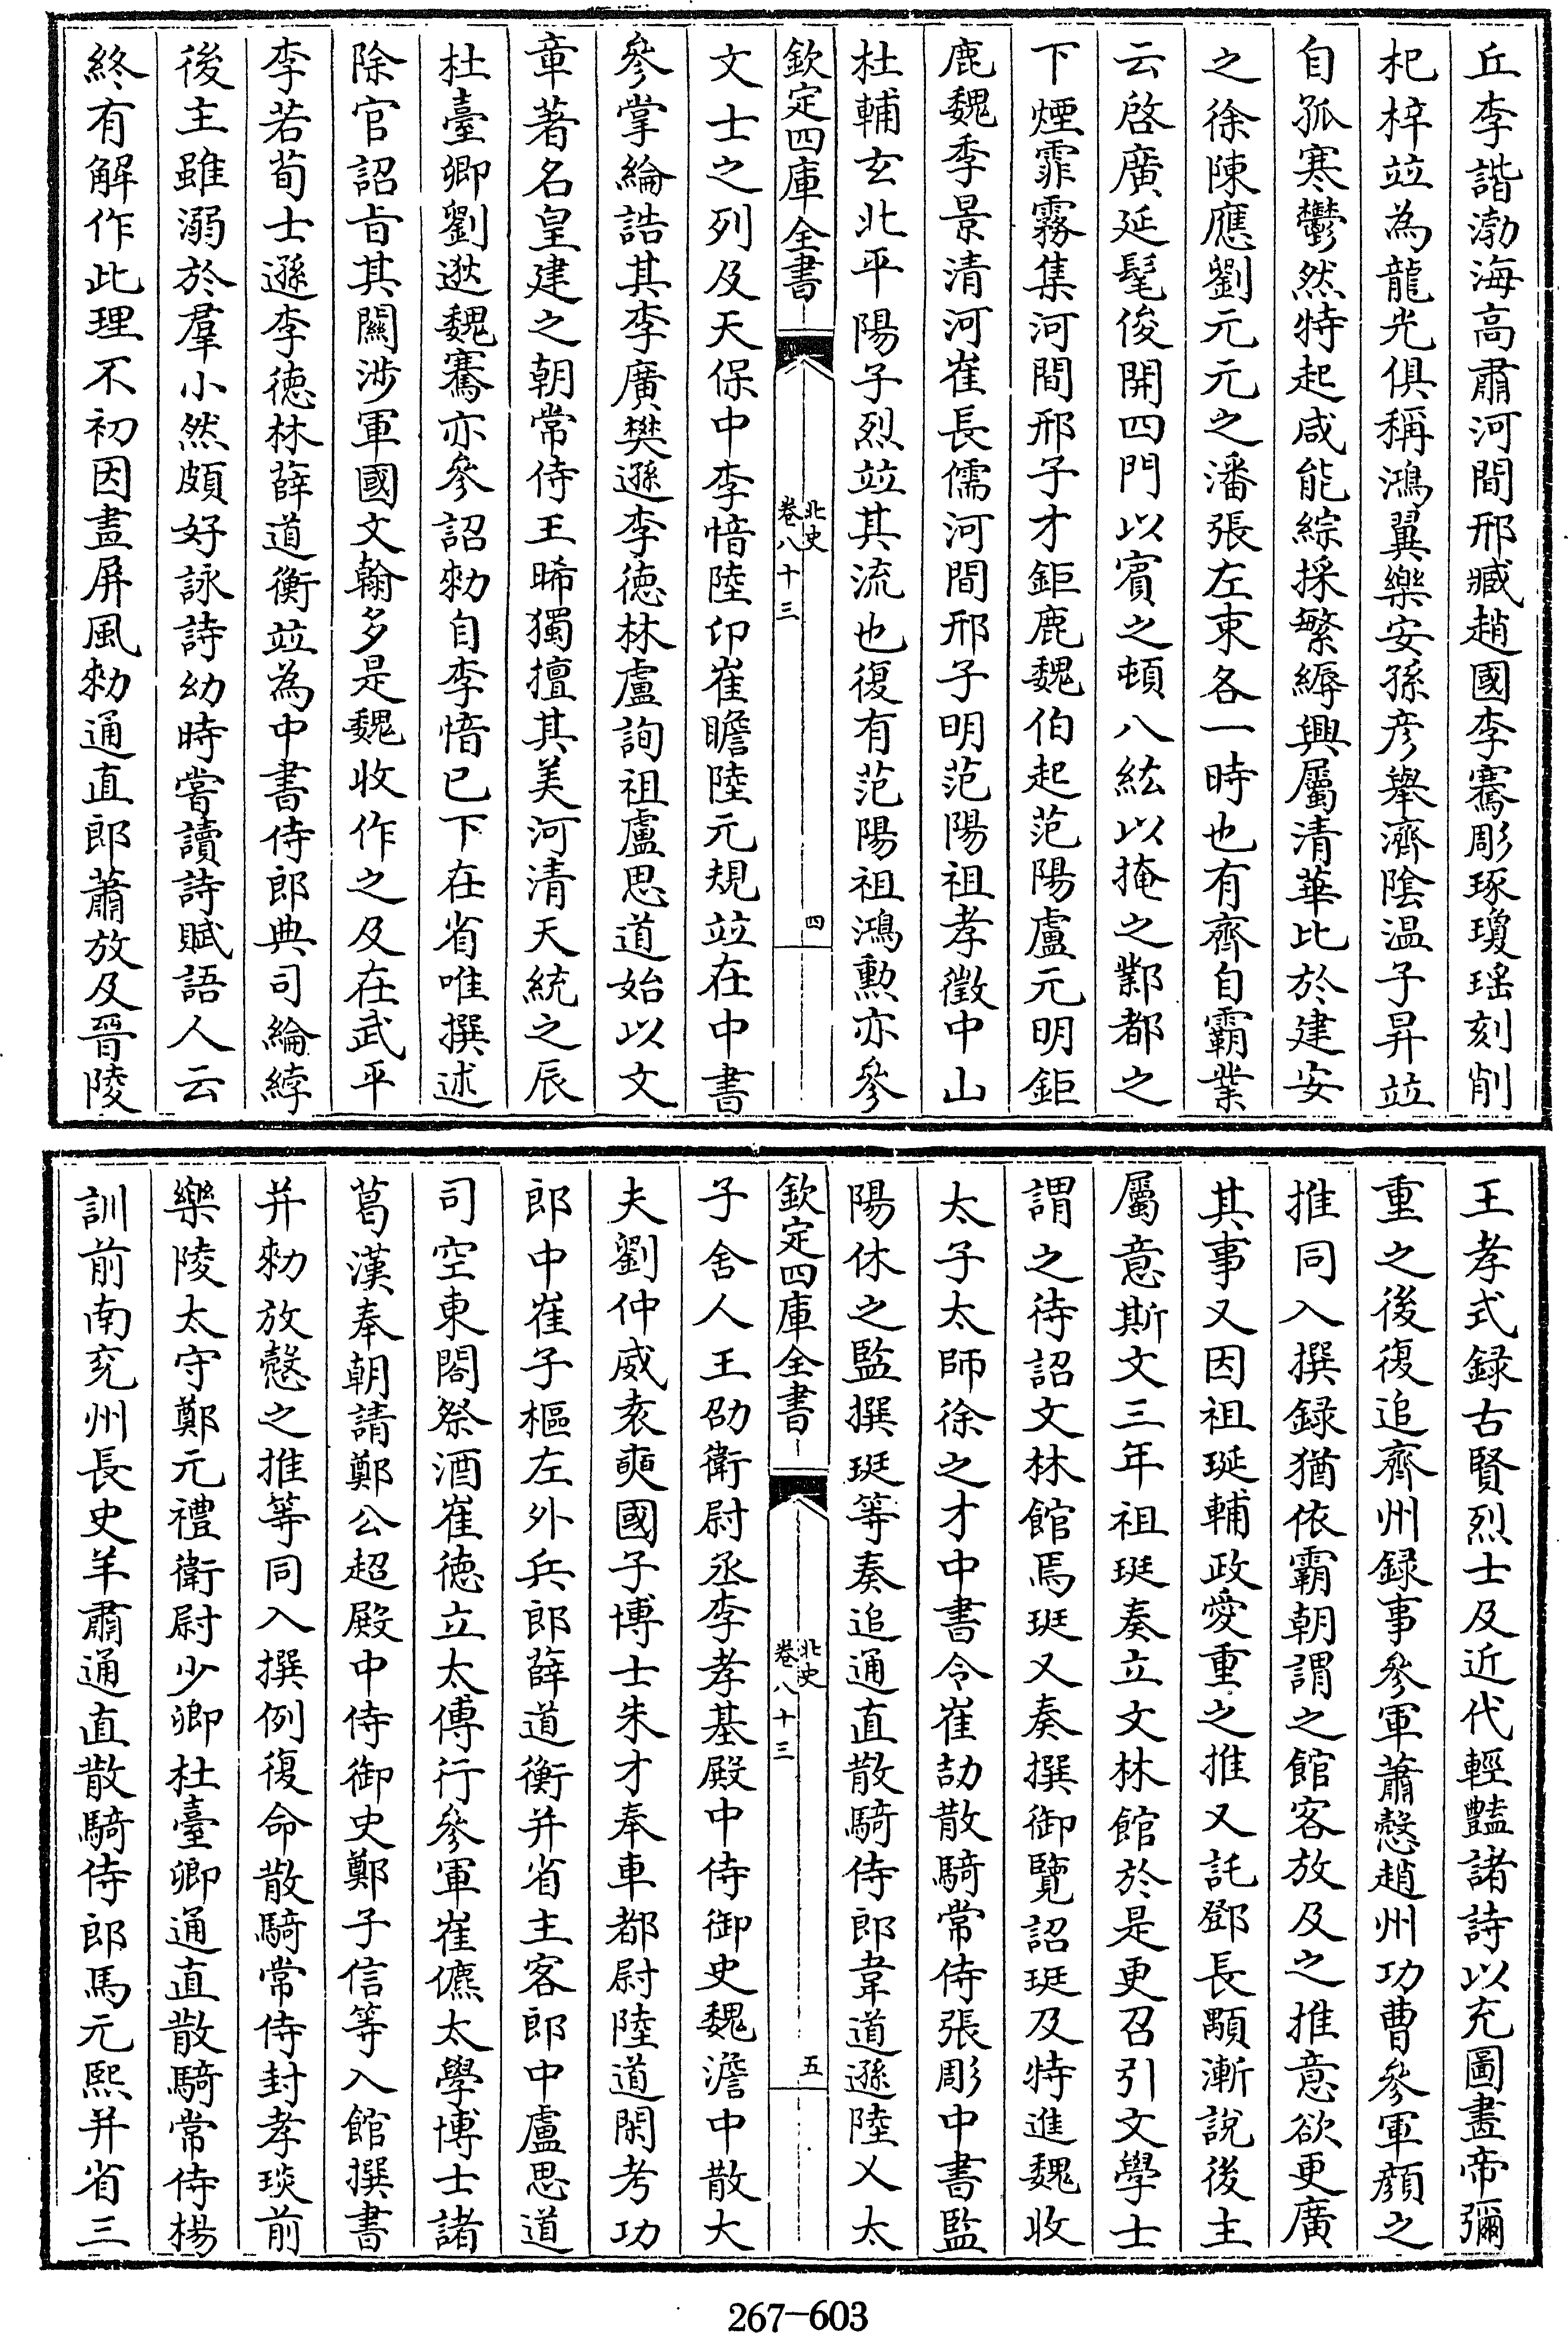 丘李諧渤海高肅河間邢臧趙國李騫彫琢瓊瑶刻削
杞梓竝為龍光俱稱鴻翼樂安孫彦舉濟隂温子昇竝
自孤寒鬱然特起咸能綜採繁縟興屬清華比於建安
之徐陳應劉元元之潘張左束各一時也有齊自霸業
云啓廣延髦俊開四門以賓之頓八紘以掩之鄴都之
下煙霏霧集河間邢子才鉅鹿魏伯起范陽盧元明鉅
鹿魏季景清河崔長儒河間邢子明范陽祖孝徵中山
杜輔玄北平陽子烈竝其流也復有范陽祖鴻勲亦參
欽定四庫全書 北史 卷八十三 四
文士之列及天保中李愔陸卬崔瞻陸元規竝在中書
參掌綸誥其李廣樊遜李德林盧詢祖盧思道始以文
章著名皇建之朝常侍王晞獨擅其美河清天統之辰
杜臺卿劉逖魏騫亦參詔勅自李愔已下在省唯撰述
除官詔㫖其關涉軍國文翰多是魏收作之及在武平
李若荀士遜李德林薛道衡竝為中書侍郎典司綸綍
後主雖溺於羣小然頗好詠詩幼時嘗讀詩賦語人云
終有解作此理不初因畫屏風勅通直郎蕭放及晉陵
王孝式録古賢烈士及近代輕豔諸詩以充圖畫帝彌
重之後復追齊州録事參軍蕭慤趙州功曹參軍顔之
推同入撰録猶依霸朝謂之館客放及之推意欲更廣
其事又因祖珽輔政愛重之推又託鄧長顒漸說後主
屬意斯文三年祖珽奏立文林館於是更召引文學士
謂之待詔文林館焉珽又奏撰御覽詔珽及特進魏收
太子太師徐之才中書令崔劼散騎常侍張彫中書監
陽休之監撰珽等奏追通直散騎侍郎韋道遜陸乂太
欽定四庫全書 北史 卷八十三 五
子舍人王劭衛尉丞李孝基殿中侍御史魏澹中散大
夫劉仲威袁奭國子博士朱才奉車都尉陸道閑考功
郎中崔子樞左外兵郎薛道衡并省主客郎中盧思道
司空東閤祭酒崔德立太傅行參軍崔儦太學博士諸
葛漢奉朝請鄭公超殿中侍御史鄭子信等入館撰書
并勅放慤之推等同入撰例復命散騎常侍封孝琰前
樂陵太守鄭元禮衛尉少卿杜臺卿通直散騎常侍楊
訓前南兖州長史羊肅通直散騎侍郎馬元熙并省三
267-603